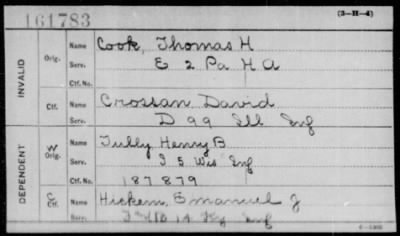 161783
(3-H-4)
INVALID
Orig.
Name Cook, Thomas H
Serv. E 2 Pa H A
Ctf. No.
Ctf.
Name Crossan David
Serv. D 99 Ill Inf
DEPENDENT
W
Orig.
Name Tully Henry B
Serv. I 5 Wis Inf
Ctf. No. 187879
C
Ctf.
Name Hickem, Emanuel J
Serv. 14 Ky Inf